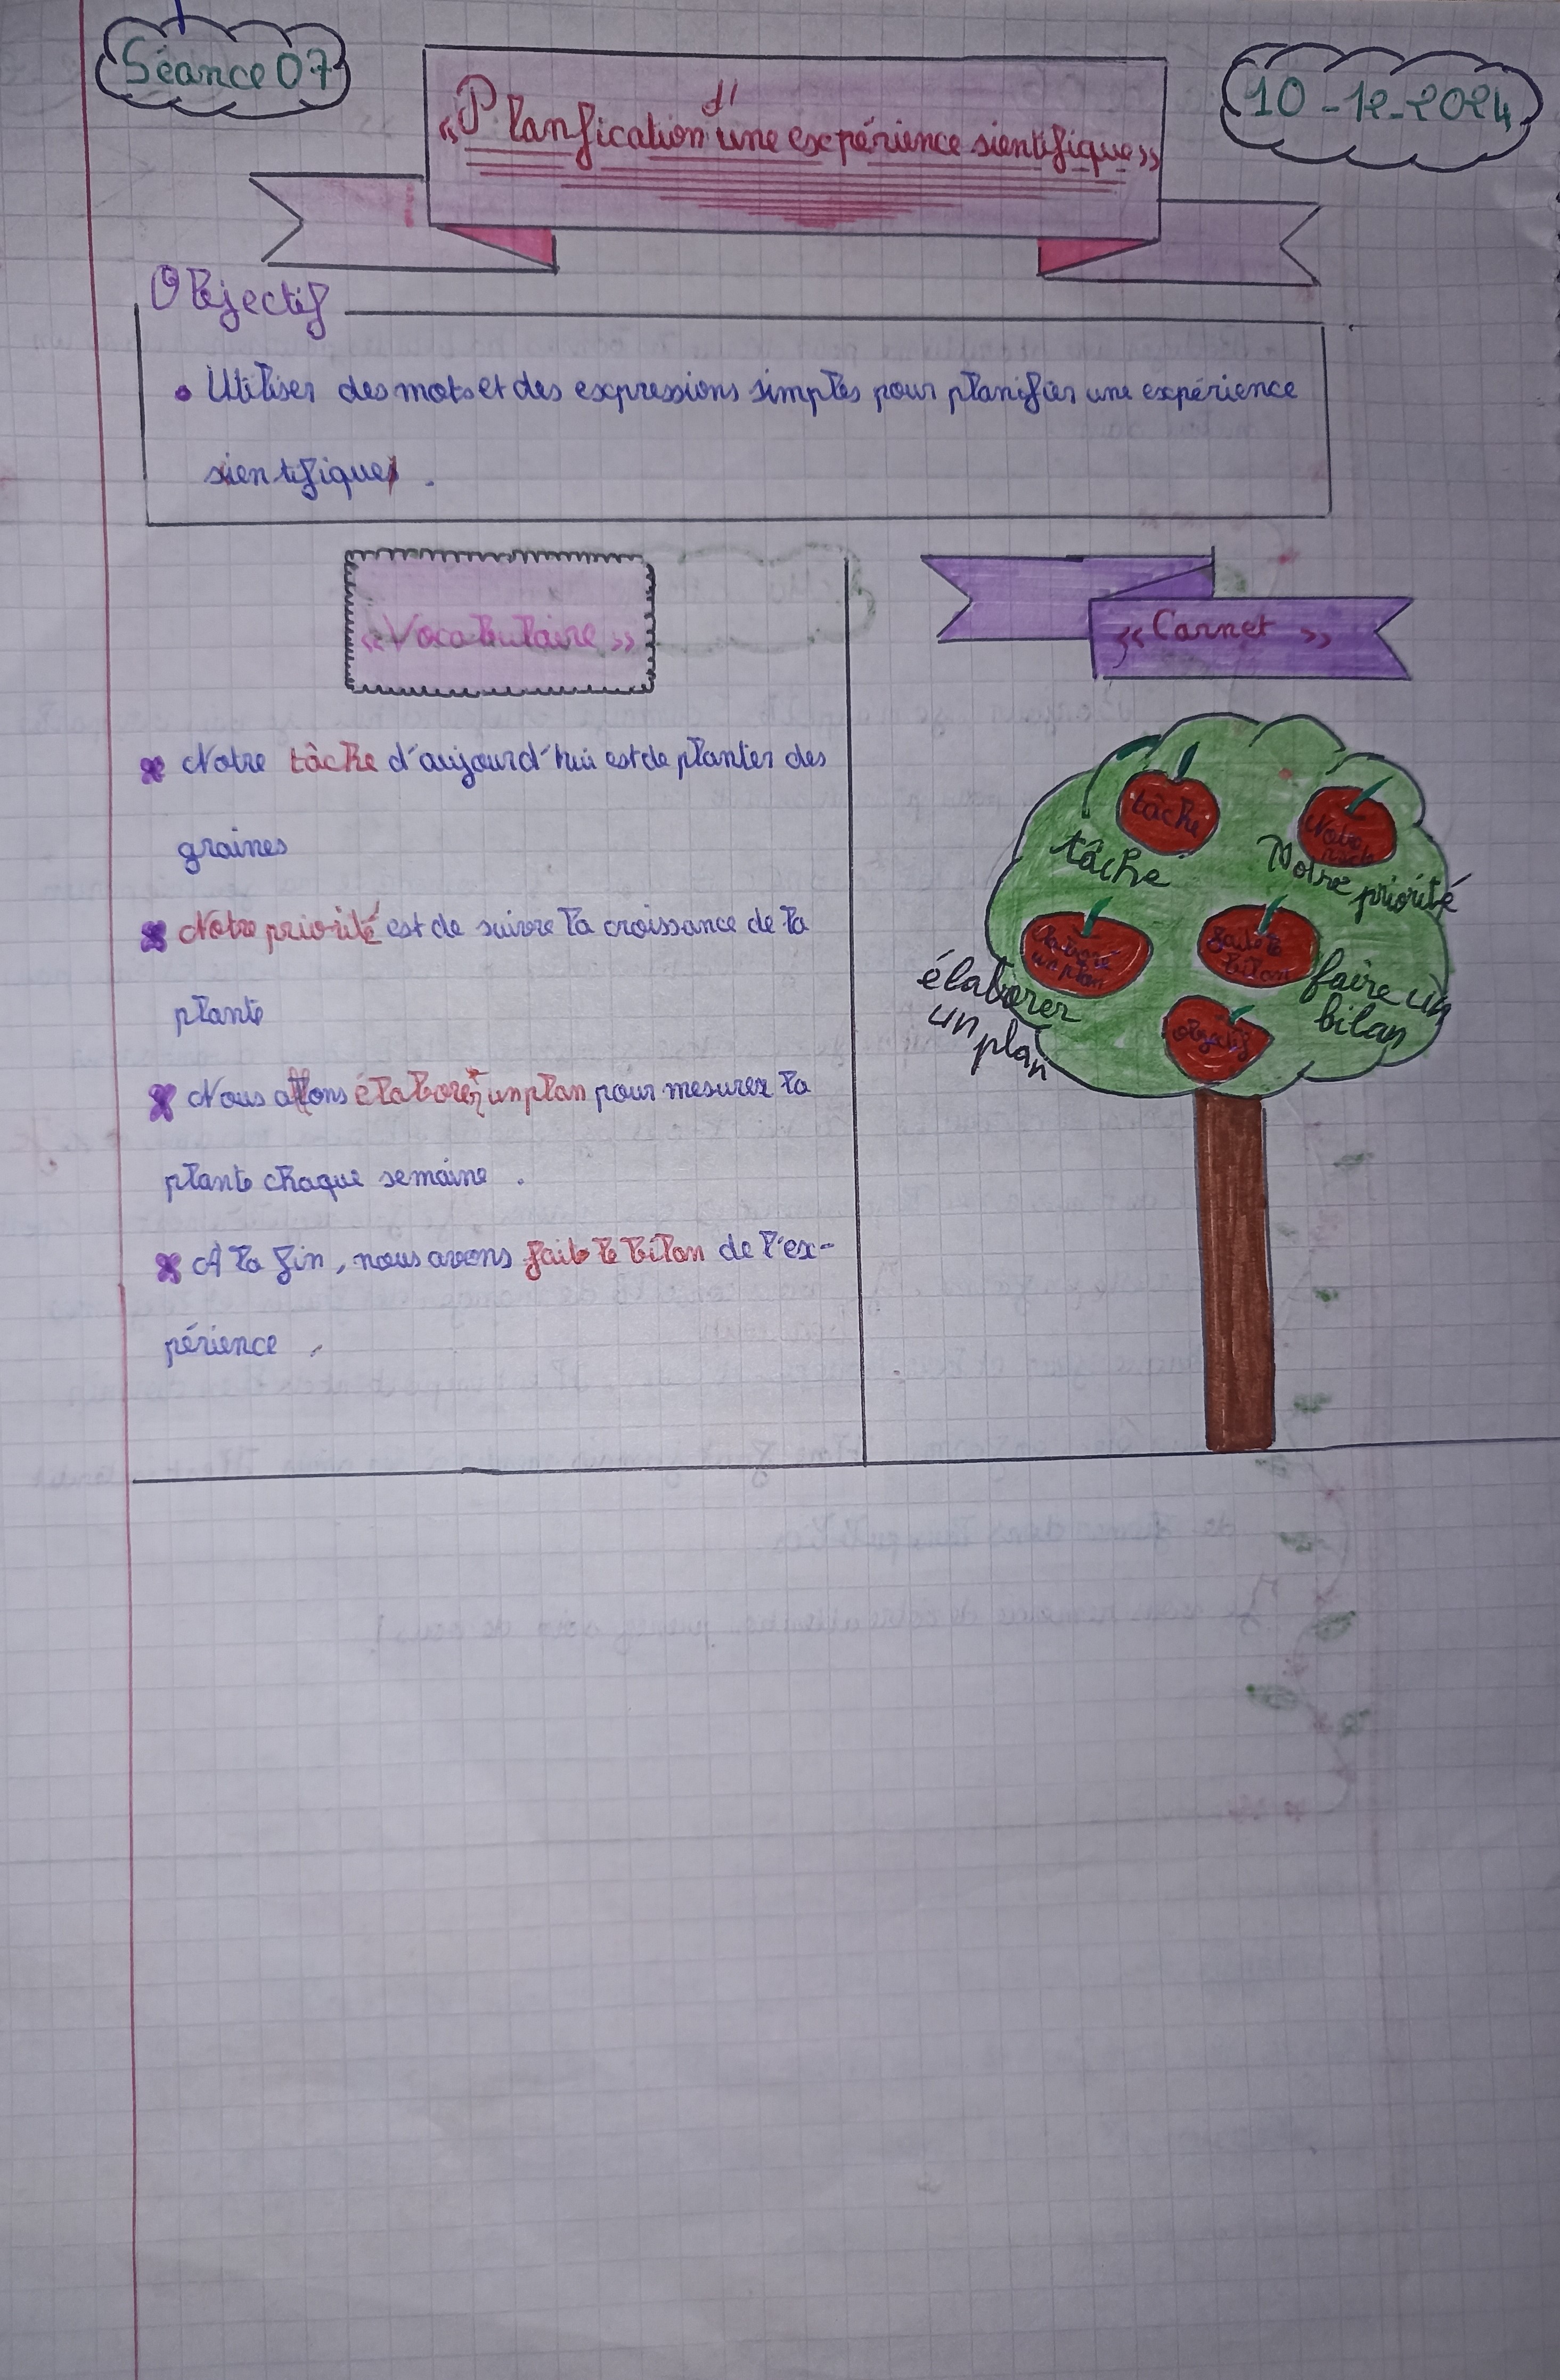 Séance 07
10-12-2024
«Planfication d'une expérience sientifique»
Objectif
• Utiliser des mots et des expressions simples pour planifier une expérience
sientifique.
«Vocabulaire»
Notre tâche d'aujourd'hui est de planter des
graines
Notre priorité est de suivre la croissance de la
plante
Nous allons élaborer un plan pour mesurer la
plante chaque semaine.
A la fin, nous avons fait le bilan de l'ex-
périence.
«Carnet»
tâche
tâche
Notre
Notre priorité
un plan
élaborer
un plan
fait le
bilan
faire un
bilan
objectif